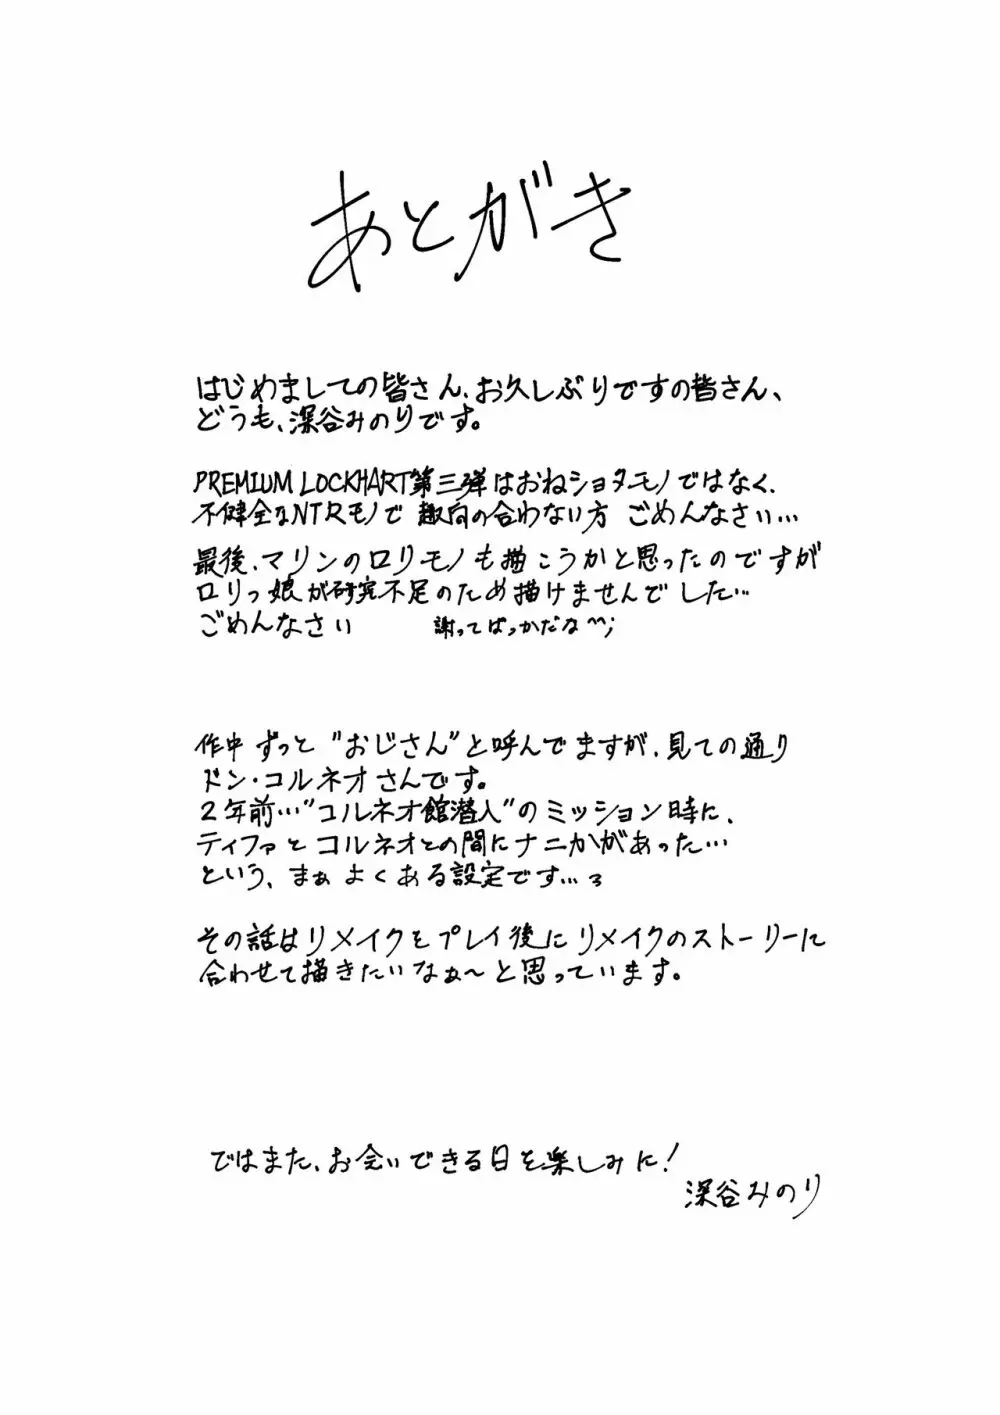 あとがき
はじめましての皆さん、お久しぶりですの皆さん、
どうも、深谷みのりです。
PREMIUM LOCKHART第三弾はおねショタモノではなく、
不健全なNTRモノで 趣向の合わない方 ごめんなさい…
最後、マリンのロリモノも描こうかと思ったのですが
ロリっ娘が研究不足のため描けませんでした…
ごめんなさい 謝ってばっかだな^^;
作中 ずっと "おじさん"と呼んでますが、見ての通り
ドン・コルネオさんです。
2年前…"コルネオ館潜入"のミッション時に、
ティファとコルネオとの間にナニかがあった…
という、まぁ よくある設定です…
その話はリメイクをプレイ後にリメイクのストーリーに
合わせて描きたいなぁ〜と思っています。
ではまた、お会いできる日を楽しみに!
深谷みのり